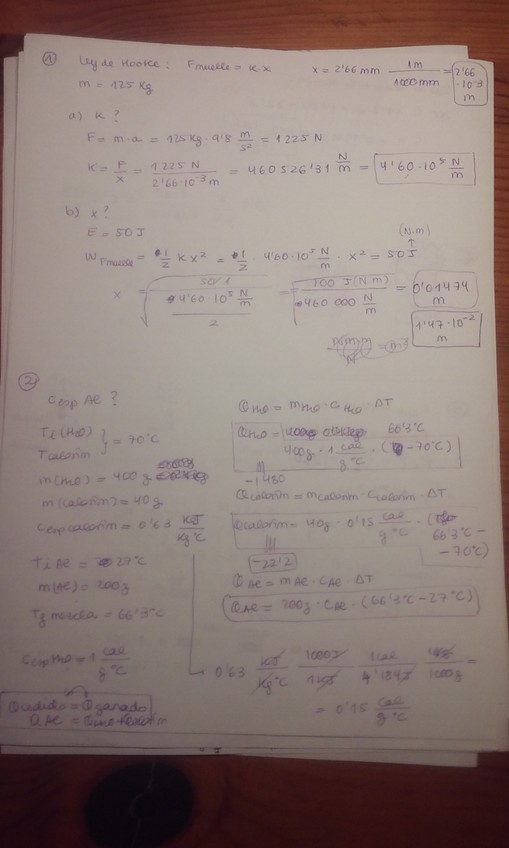 1 Ley de Hooke: Fmuelle = K x x = 2'66 mm 1m / 1000 mm = 2'66 · 10⁻³ m
m = 125 Kg
a) K?
F = m · a = 125 Kg · 9'8 m/s² = 1225 N
K = F/x = 1225 N / 2'66·10⁻³ m = 460526'31 N/m = 4'60·10⁵ N/m
b) x?
E = 50 J
(N·m)
W Fmuelle = 1/2 K x² = 1/2 · 4'60·10⁵ N/m · x² = 50 J
x = √(50 J / (4'60 10⁵ N/m / 2)) = √(100 J (N m) / 460 000 N/m) = 0'01474 m
1'47·10⁻² m
2
Cesp Ae?
Ti (H₂O)
Tcalorím } = 70°C
m (H₂O) = 400 g
m (calorím) = 40 g
Cesp calorím = 0'63 KJ / Kg °C
Ti Ae = 27°C
m (Ae) = 200 g
Tf mezcla = 66'3°C
Cesp H₂O = 1 cal / g °C
Qcedido = Qganado
QAe = QH₂O + calorím
QH₂O = mH₂O · CH₂O · ΔT
QH₂O = 400 g · 1 cal / g °C · (66'3°C - 70°C)
-1480
Qcalorím = mcalorím · Ccalorím · ΔT
Qcalorím = 40 g · 0'15 cal / g °C · (66'3°C - 70°C)
-22'2
QAe = mAe · CAe ΔT
QAe = 200 g · CAe · (66'3°C - 27°C)
0'63 KJ / Kg °C 1000 J / 1 KJ 1 cal / 4'184 J 1 Kg / 1000 g =
= 0'15 cal / g °C